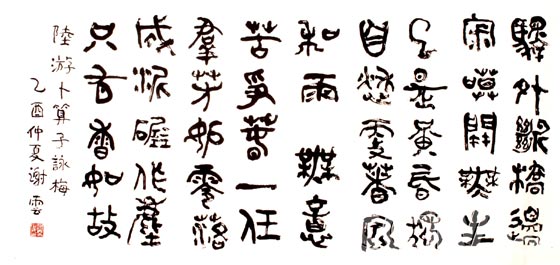 驛外斷橋邊
寂寞開無主
已是黃昏獨
自愁更著風
和雨 無意
苦爭春一任
羣芳妒零落
成泥碾作塵
只有香如故
陸游卜算子詠梅
乙酉仲夏謝雲